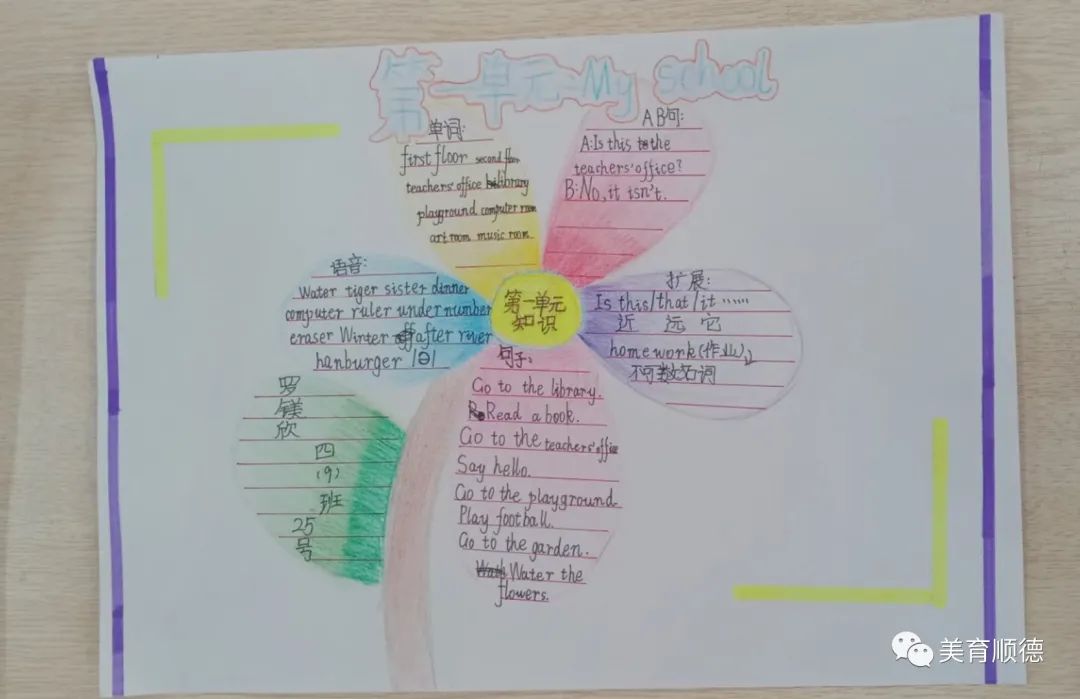 第一单元 My school
单词:
first floor second floor
teachers' office library
playground computer room
art room music room
AB句:
A:Is this the
teachers' office?
B:No, it isn't.
语音:
Water tiger sister dinner
computer ruler under number
eraser Winter after river
hanburger /ə/
第一单元
知识
扩展:
Is this/that/it ……
近 远 它
homework(作业)
不可数名词
句子:
Go to the library.
Read a book.
Go to the teachers' office
Say hello.
Go to the playground
Play football.
Go to the garden.
Water the
flowers.
罗
镁
欣
四
(9)
班
25
号
美育顺德